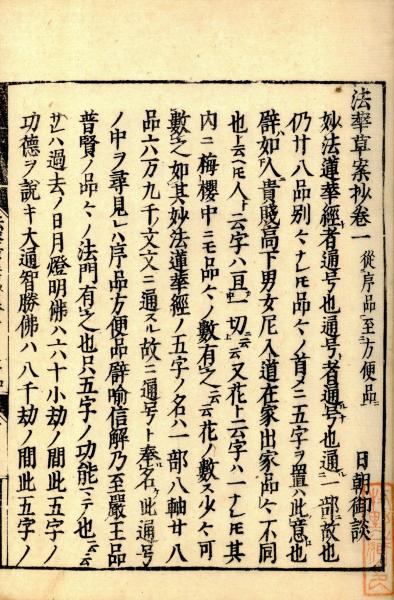 法華草案抄卷一 從序品至方便品 日朝御談
妙法蓮華經者通号也通号者通号也通一部故也
仍廿八品別々ナレモ品々ノ首メニ五字ヲ置ハ此意也
譬如人貴賤高下男女尼入道在家出家品々不同
也上云ヘ人ト云字ハ且一切云云又花ト云字ハ一ナレモ其
内ニ梅櫻中ニモ品々ノ數有之云云花ノ數ス少々可
數之如其妙法蓮華經ノ五字ノ名ハ一部八軸廿八
品六万九千ノ文文ニ通スル故ニ通号ト奉名ケ此通号
ノ中ヲ尋見レハ序品方便品譬喻信解乃至嚴王品
普賢ノ品々ノ法門有之也只五字ノ功能ニテノ也云云
サレハ過去ノ日月燈明佛ハ六十小劫ノ間此五字ノ
功德ヲ說キ大通智勝佛ハ八千劫ノ間此五字ノ